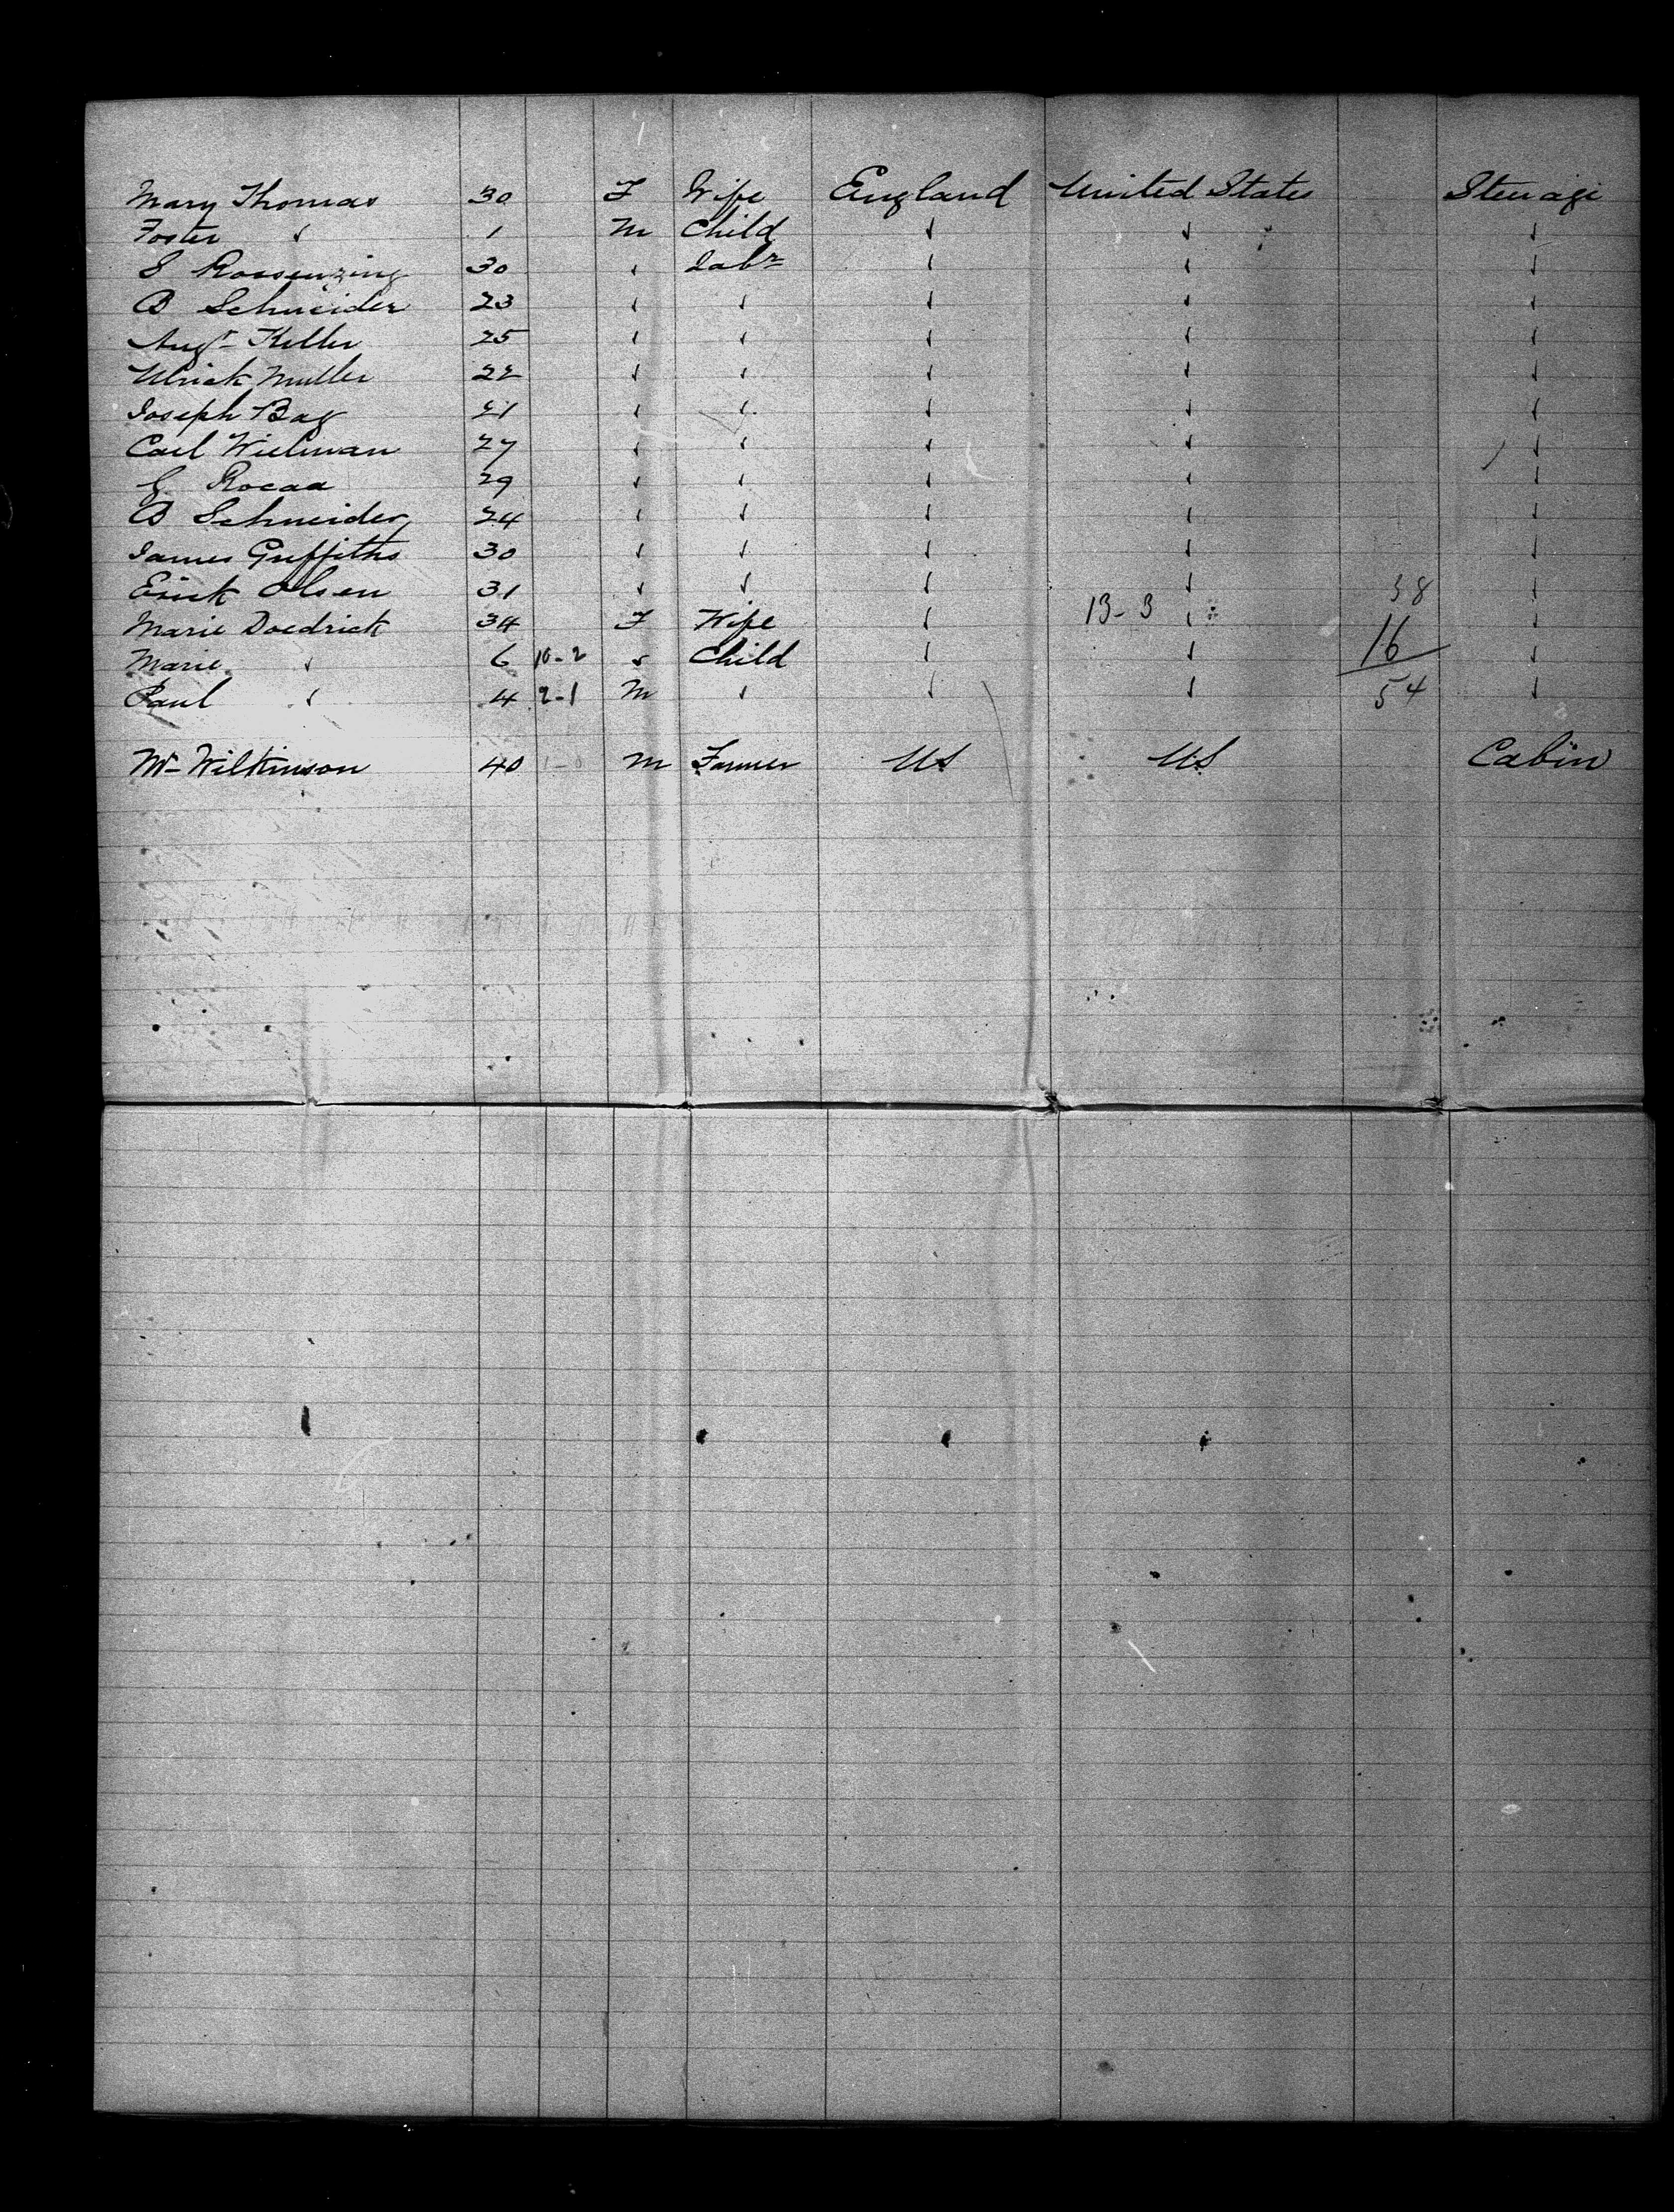 Mary Thomas 30 F Wife England United States Steerage
Foster " 1 M Child " " "
S Rossenzing 30 " Labr " " "
B Schneider 23 " " " " "
Augt Keller 25 " " " " "
Ulrick Muller 22 " " " " "
Joseph Bag 21 " " " " "
Carl Wielman 27 " " " " "
G Rocaa 29 " " " " "
B Schneider 24 " " " " "
James Griffiths 30 " " " " "
Erick Olsen 31 " " " " " 38
Marie Doedrick 34 F Wife " 13-3 " 16 "
Marie " 6 10-2 " Child " " "
Paul " 4 2-1 M " " " 54 "
Wm Wilkinson 40 1-0 M Farmer US US Cabin